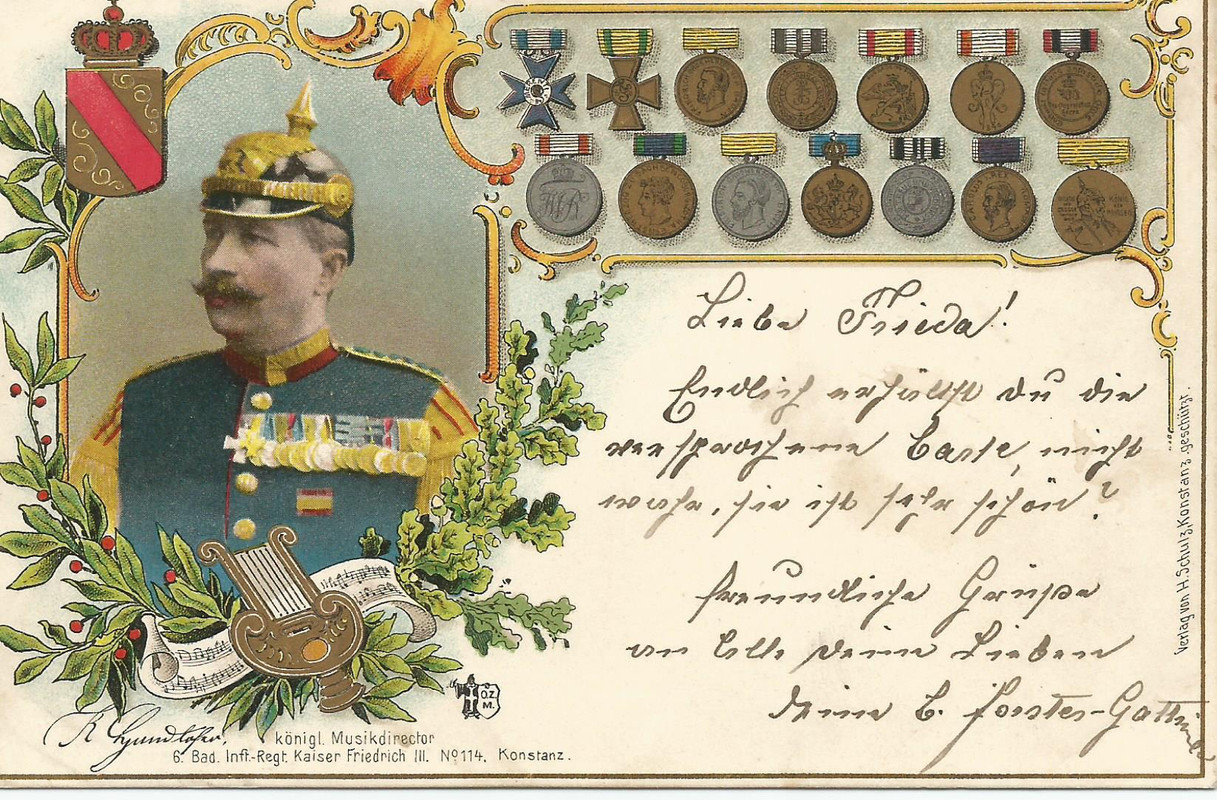 Liebe Frieda!
Endlich erhältst du die
versprochene Carte, nicht
wahr, sie ist sehr schön?
freundliche Grüße
an Alle deine Lieben
deine C. Forster-
Verlag von H. Schulz, Konstanz. geschützt.
O.Z.
M.
R
königl. Musikdirector
6. Bad. Inft.-Regt. Kaiser Friedrich III. No 114, Konstanz.